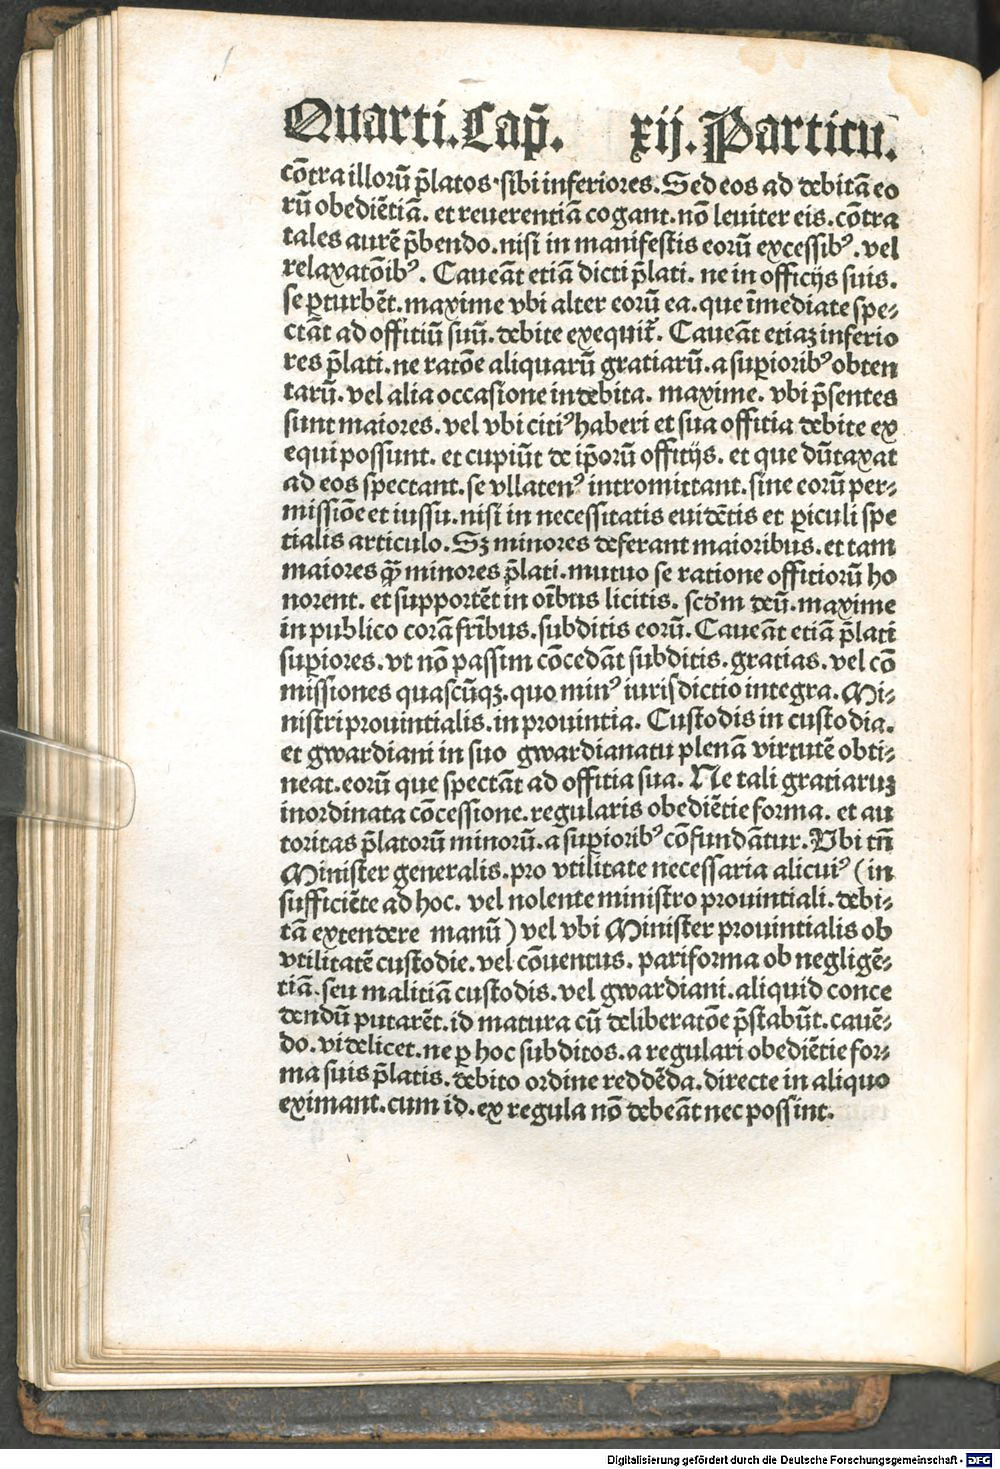 Quarti. Cap̃. xij. Particu.
cõtra illorũ p̃latos·sibi inferiores. Sed eos ad debitã eo
rũ obediẽtiã. et reuerentiã cogant. nõ leuiter eis. cõtra
tales aurẽ p̃bendo. nisi in manifestis eorũ excessibꝰ. vel
relaxatõibꝰ. Caueãt etiã dicti p̃lati. ne in officijs suis.
se ꝑturbẽt. maxime vbi alter eorũ ea. que ĩmediate spe⸗
ctãt ad offitiũ suũ. debite exequit̃. Caueãt etiaꝫ inferio
res p̃lati. ne ratõe aliquarũ gratiarũ. a suꝑioribꝰ obten
tarũ. vel alia occasione indebita. maxime. vbi p̃sentes
sunt maiores. vel vbi citiꝰ haberi et sua offitia debite ex
equi possunt. et cupiũt de ip̃orũ offitijs. et que dũtaxat
ad eos spectant. se vllatenꝰ intromittant. sine eorũ per⸗
missiõe et iussu. nisi in necessitatis euidẽtis et ꝑiculi spe
tialis articulo. Sꝫ minores deferant maioribus. et tam
maiores q̃ꝫ minores p̃lati. mutuo se ratione offitiorũ ho
norent. et supportẽt in oĩbus licitis. scd̃m deũ. maxime
in publico corã fr̃ibus. subditis eorũ. Caueãt etiã p̃lati
suꝑiores. vt nõ passim cõcedãt subditis. gratias. vel cõ
missiones quascũqꝫ. quo minꝰ iurisdictio integra. Mi⸗
nistri prouintialis. in prouintia. Custodis in custodia.
et gwardiani in suo gwardianatu plenã virtutẽ obti⸗
neat. eorũ que spectãt ad offitia sua. Ne tali gratiaruꝫ
inordinata cõcessione. regularis obediẽtie forma. et au
toritas p̃latorũ minorũ. a suꝑioribꝰ cõfundãtur. Vbi tñ
Minister generalis. pro vtilitate necessaria alicuiꝰ (in
sufficiẽte ad hoc. vel nolente ministro prouintiali. debi⸗
tã extendere manũ) vel vbi Minister prouintialis ob
vtilitatẽ custodie. vel cõuentus. pariforma ob negligẽ⸗
tiã. seu malitiã custodis. vel gwardiani. aliquid conce
dendũ putarẽt. id matura cũ deliberatõe p̃stabũt. cauẽ⸗
do. videlicet. ne ꝑ hoc subditos. a regulari obediẽtie for⸗
ma suis p̃latis. debito ordine reddẽda. directe in aliquo
eximant. cum id. ex regula nõ debeãt nec possint.
Digitalisierung gefördert durch die Deutsche Forschungsgemeinschaft - DFG